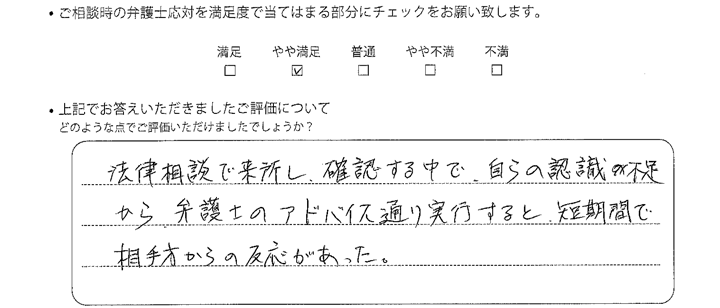 • ご相談時の弁護士応対を満足度で当てはまる部分にチェックをお願い致します。
満足 やや満足 普通 やや不満 不満
☐ ☑ ☐ ☐ ☐
• 上記でお答えいただきましたご評価について
どのような点でご評価いただけましたでしょうか？
法律相談で来所し、確認する中で、自らの認識の不足
から、弁護士のアドバイス通り実行すると、短期間で
相手方からの反応があった。